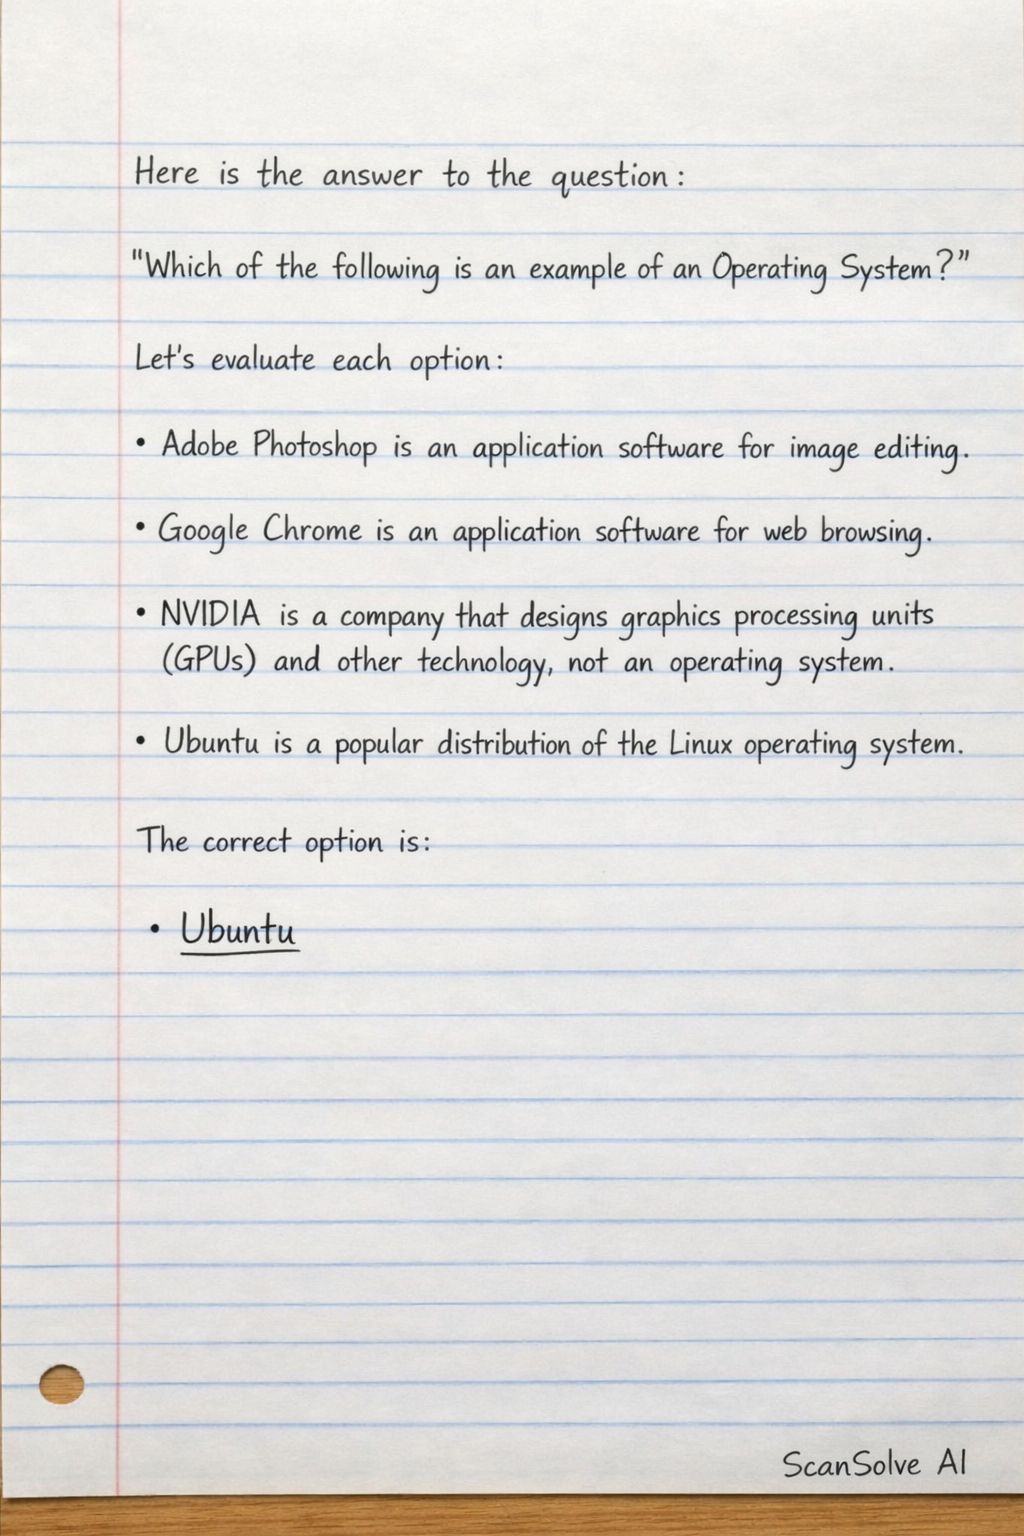 Here is the answer to the question:
"Which of the following is an example of an Operating System?"
Let's evaluate each option:
• Adobe Photoshop is an application software for image editing.
• Google Chrome is an application software for web browsing.
• NVIDIA is a company that designs graphics processing units
(GPUs) and other technology, not an operating system.
• Ubuntu is a popular distribution of the Linux operating system.
The correct option is:
• Ubuntu
ScanSolve AI